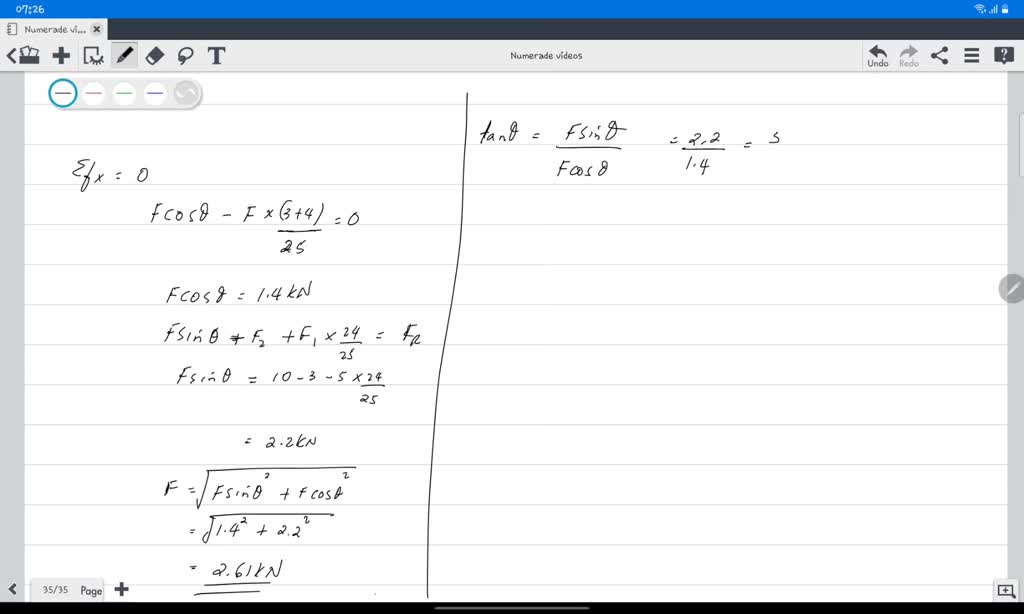 07:26
Numerade vi...
T
Numerade videos
Undo
Redo
Σfx = 0
Fcosθ - F × (3+4)/25 = 0
Fcosθ = 1.4 kN
Fsinθ + F₂ + F₁ × 24/25 = F_R
Fsinθ = 10 - 3 - 5 × 24/25
= 2.2 kN
F = √(Fsinθ² + Fcosθ²)
= √(1.4² + 2.2²)
= 2.61 kN
tanθ = Fsinθ/Fcosθ = 2.2/1.4 = s
35/35 Page